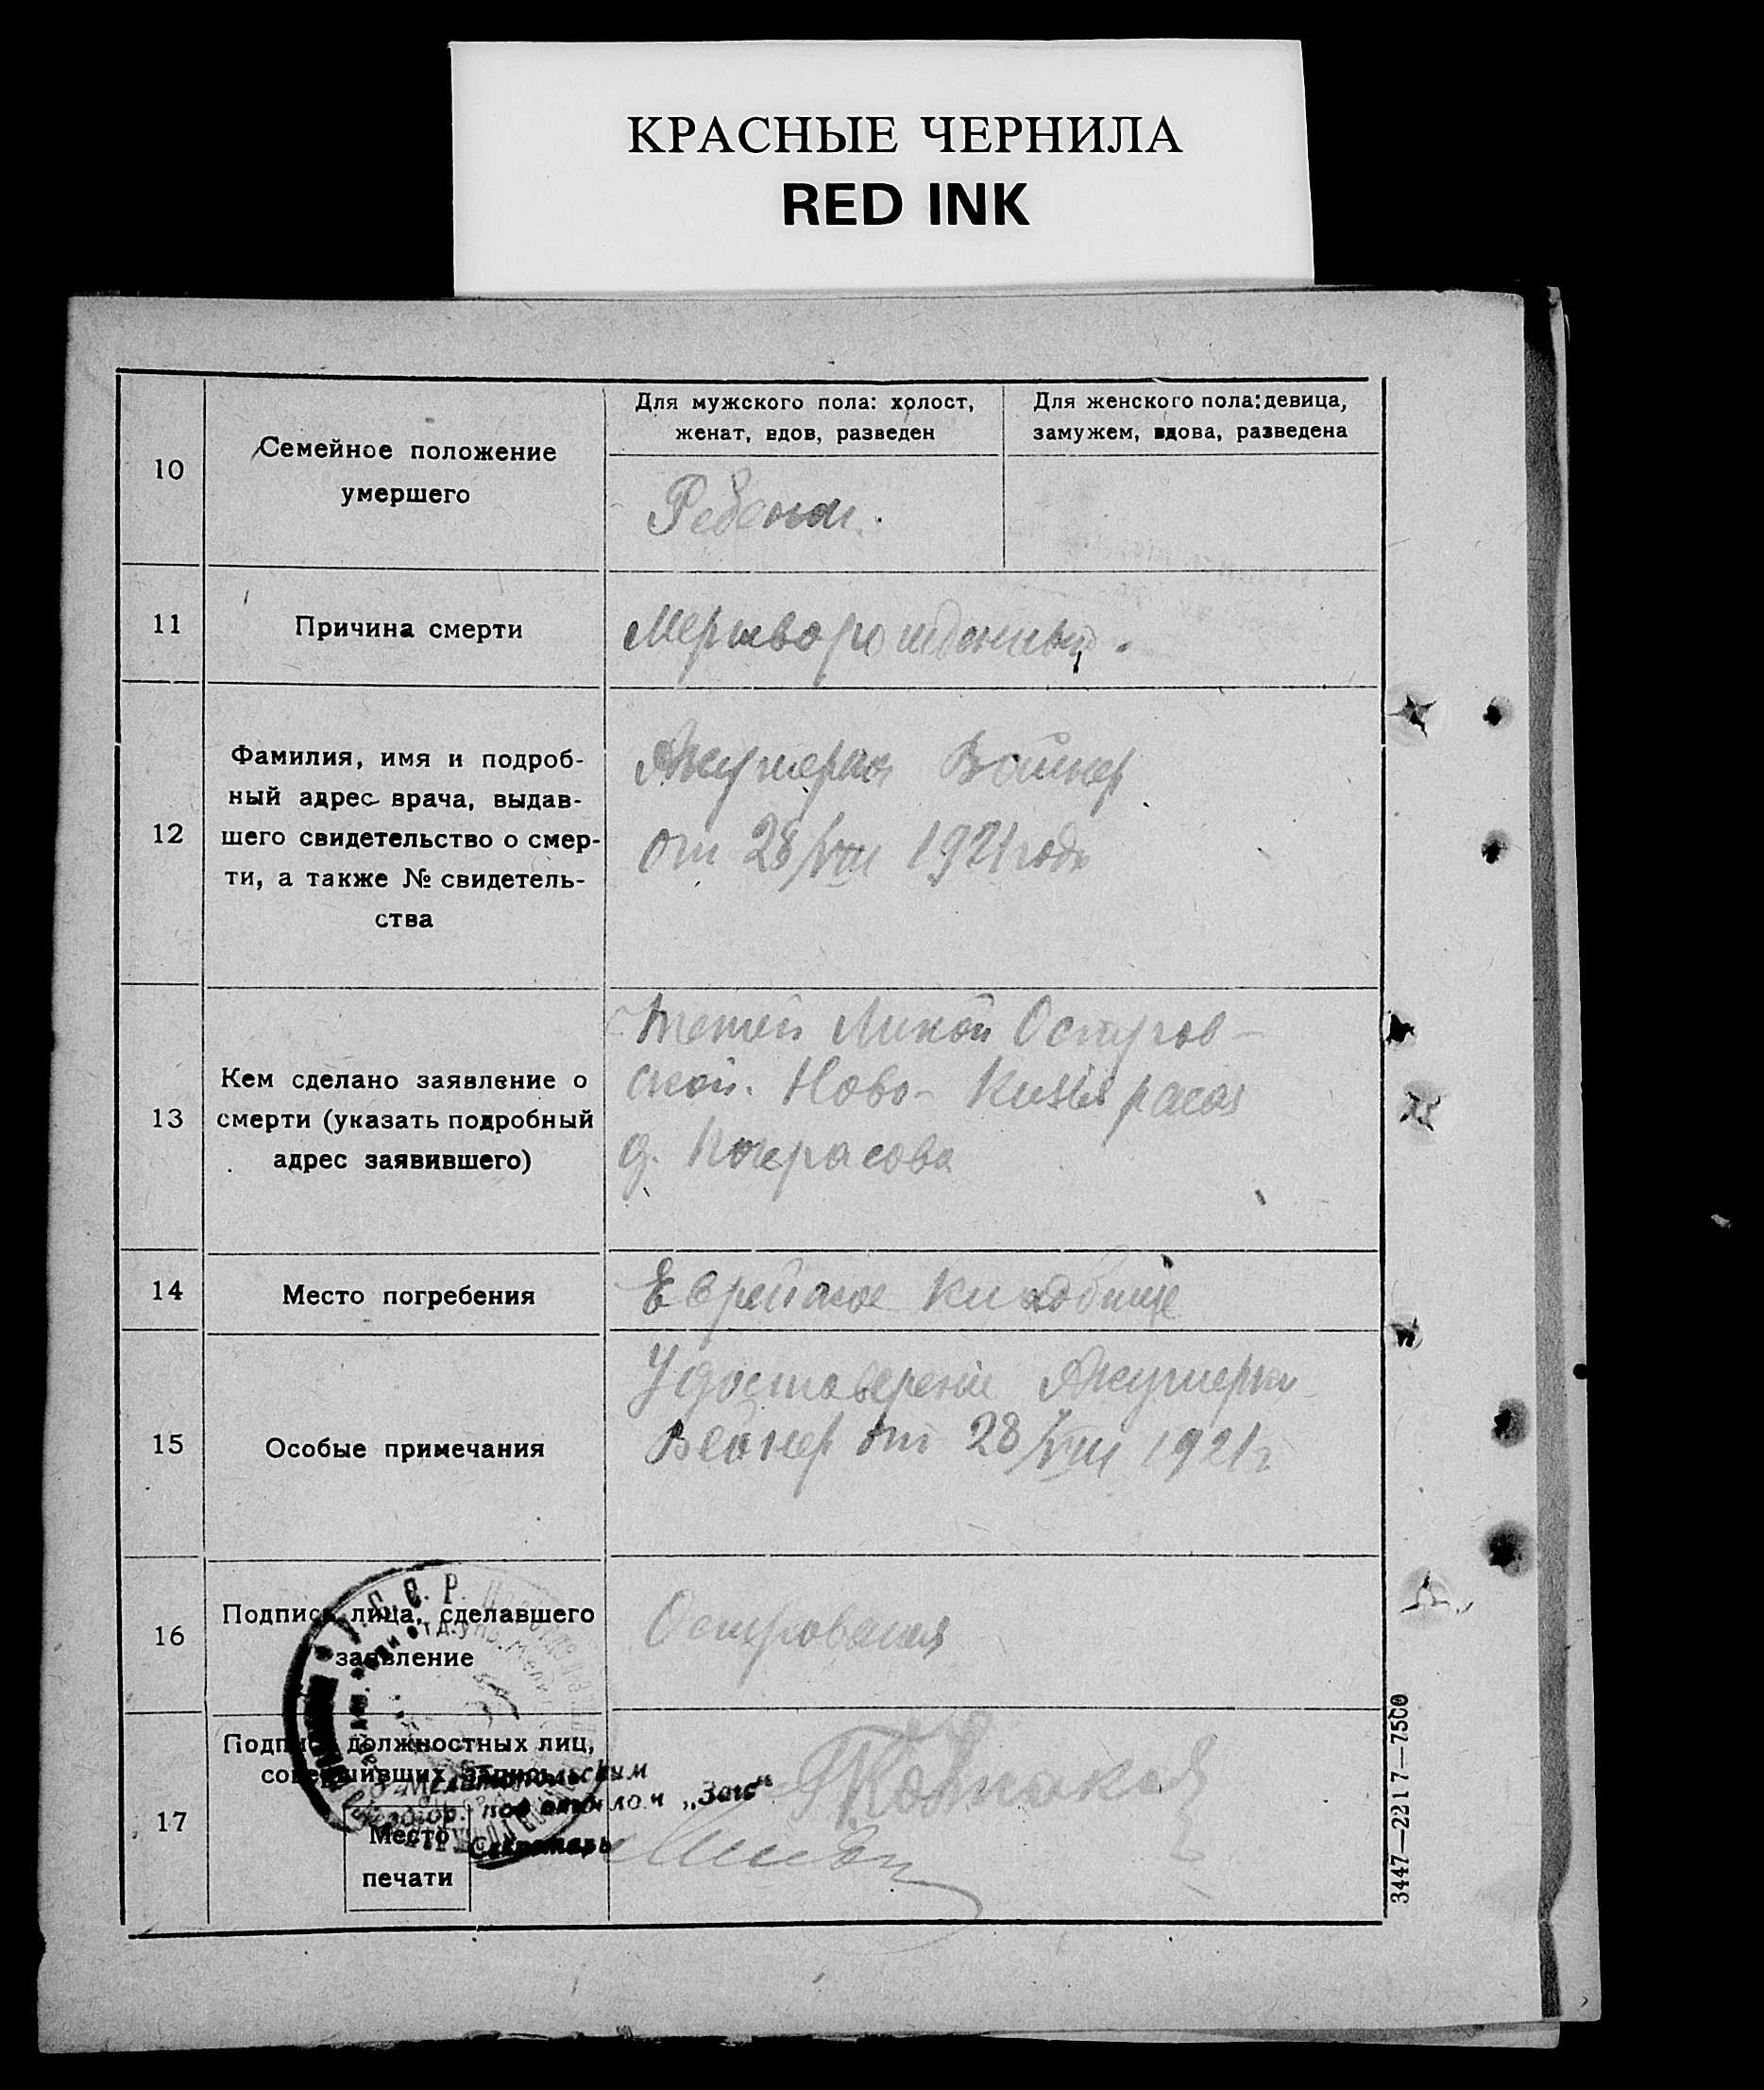 КРАСНЫЕ ЧЕРНИЛА
RED INK
10
Семейное положение
умершего
Для мужского пола: холост,
женат, вдов, разведен
Для женского пола: девица,
замужем, вдова, разведена
Ребенок.
11
Причина смерти
Мертворожденный.
12
Фамилия, имя и подроб-
ный адрес врача, выдав-
шего свидетельство о смер-
ти, а также № свидетель-
ства
Акушерка Вайнер
от 28/VIII 1921 года
13
Кем сделано заявление о
смерти (указать подробный
адрес заявившего)
Остров-
ской. Ново-
д.
14
Место погребения
Еврейское
15
Особые примечания
Удостоверение Акушерки
Вейнер от 28/VIII 1921 г
16
Подпись лица, сделавшего
заявление
Островская
17
Подписи должностных лиц,
совершивших запись
Секретарь
„Загс“
Место
печати
3447—2217—7500